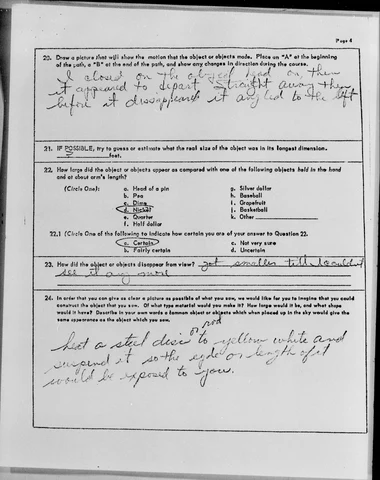 Page 4
20. Draw a picture that will show the motion that the object or objects made. Place an "A" at the beginning
of the path, a "B" at the end of the path, and show any changes in direction during the course.
I closed on the object head on, then
it appeared to depart straight away then
before it dissappeared it angled to the left
21. IF POSSIBLE, try to guess or estimate what the real size of the object was in its longest dimension.
feet.
22. How large did the object or objects appear as compared with one of the following objects held in the hand
and at about arm's length?
(Circle One):
a. Head of a pin
b. Pea
c. Dime
d. Nickel
e. Quarter
f. Half dollar
g. Silver dollar
h. Baseball
i. Grapefruit
j. Basketball
k. Other
22.1 (Circle One of the following to indicate how certain you are of your answer to Question 22.
a. Certain
b. Fairly certain
c. Not very sure
d. Uncertain
23. How did the object or objects disappear from view? got smaller till I couldn't
see it any more
24. In order that you can give as clear a picture as possible of what you saw, we would like for you to imagine that you could
construct the object that you saw. Of what type material would you make it? How large would it be, and what shape
would it have? Describe in your own words a common object or objects which when placed up in the sky would give the
same appearance as the object which you saw.
heat a steel disc or rod to yellow white and
suspend it so the egde or length of it
would be exposed to you.